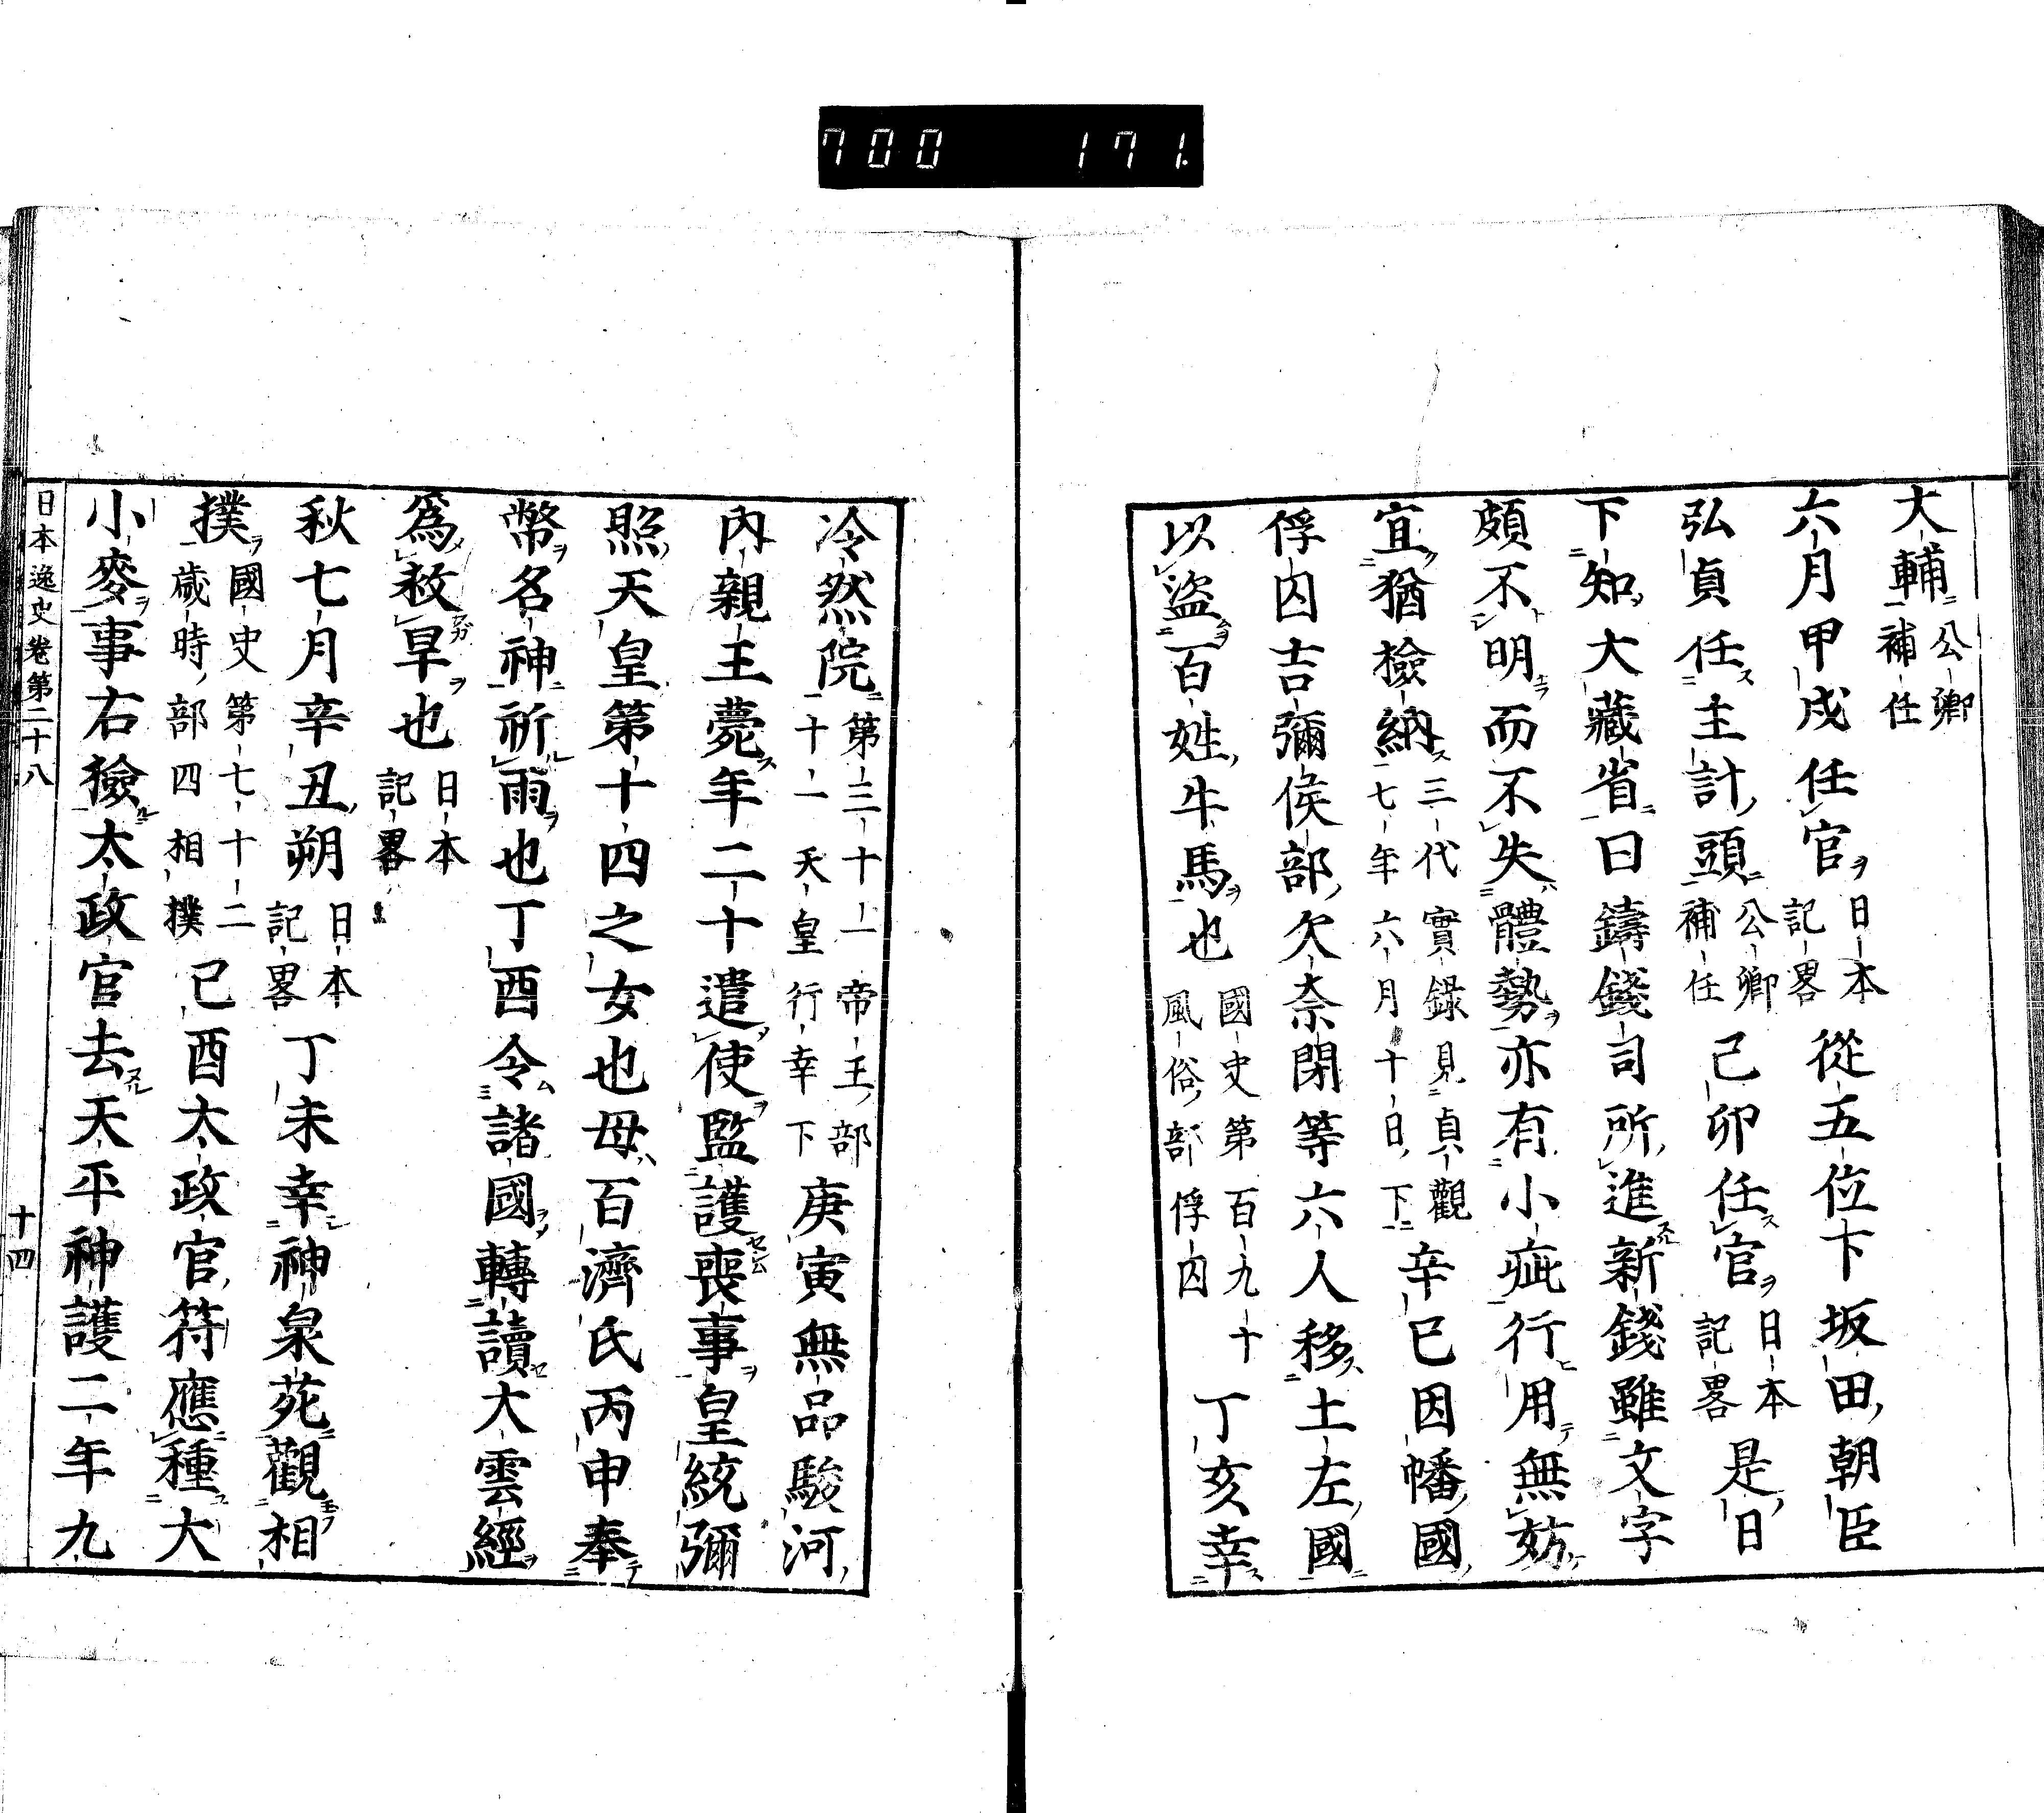 700 171
大輔公卿補任
六月甲戌任官日本記畧從五位下坂田朝臣
弘貞任主計頭公卿補任己卯任官日本記畧是日
下知大藏省曰鑄錢司所進新錢雖文字
頗不明而不失體勢亦有小疵行用無妨
宜猶撿納三代實錄見貞觀七年六月十日下辛巳因幡國
俘囚吉彌侯部欠奈閇等六人移土左國
以盜百姓牛馬也國史第百九十風俗部俘囚丁亥幸
冷然院第三十一帝王部十一天皇行幸下庚寅無品駿河
內親王薨年二十遣使監護喪事皇統彌
照天皇第十四之女也母百濟氏丙申奉
幣名神祈雨也丁酉令諸國轉讀大雲經
爲救旱也日本記畧
秋七月辛丑朔日本記畧丁未幸神泉苑觀相
撲國史第七十二歲時部四相撲己酉太政官符應種大
小麥事右撿太政官去天平神護二年九
日本逸史卷第二十八 十四